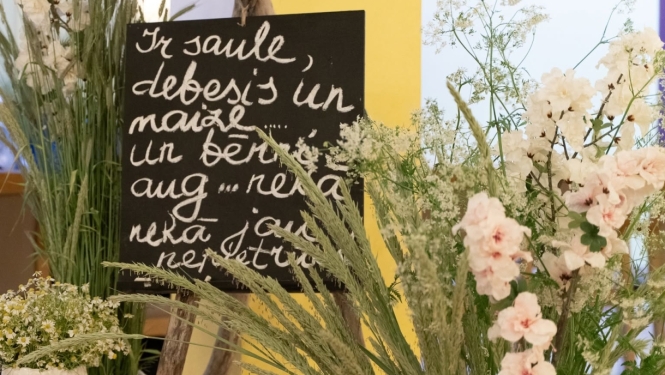 Ir saule,
debesis un
maize....
un bērni
aug... nekā
nekā jau
nepietrūkst